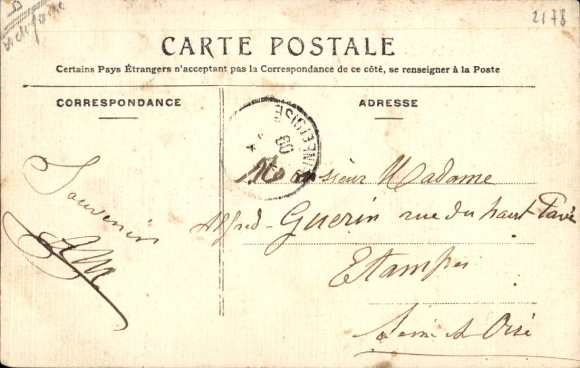 2178
CARTE POSTALE
Certains Pays Étrangers n'acceptant pas la Correspondance de ce côté, se renseigner à la Poste
CORRESPONDANCE
ADRESSE
Souvenirs
Monsieur Madame
Alfred Guerin rue du haut Pavé
Etampes
Seine et Oise